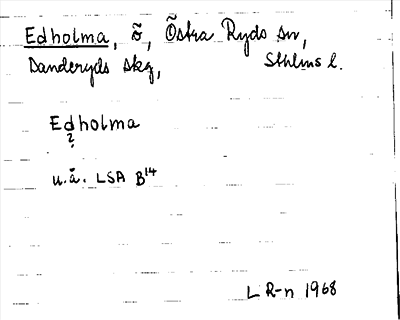 Edholma, ö, Östra Ryds sn,
Danderyds skg, Sthlms l.
Edholma
?
u.å. LSA B14
L R-n 1968